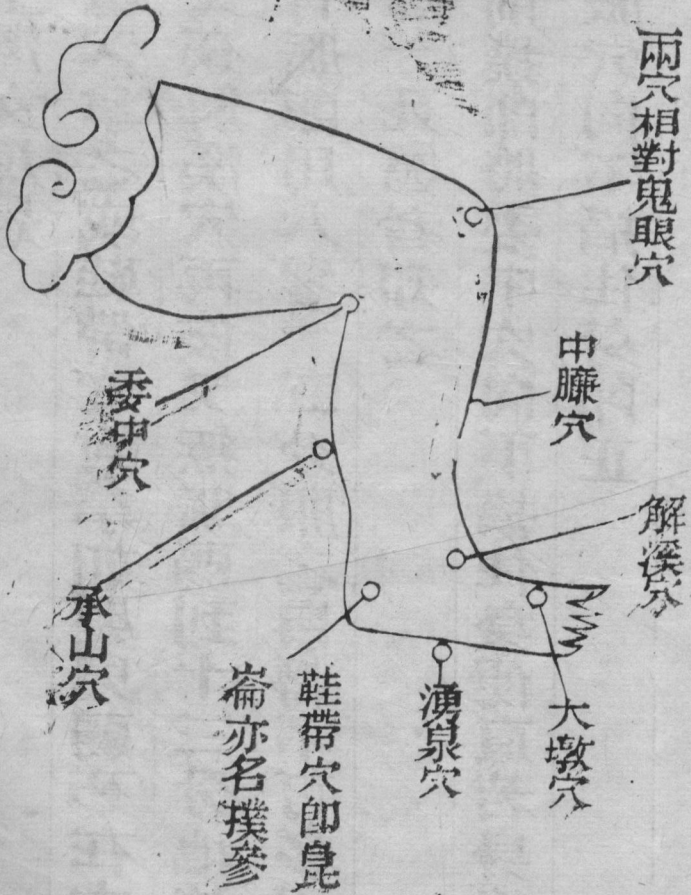 兩穴相對鬼眼穴
中臁穴
解溪穴
大墩穴
湧泉穴
鞋帶穴卽崑
崙亦名撲參
委中穴
承山穴